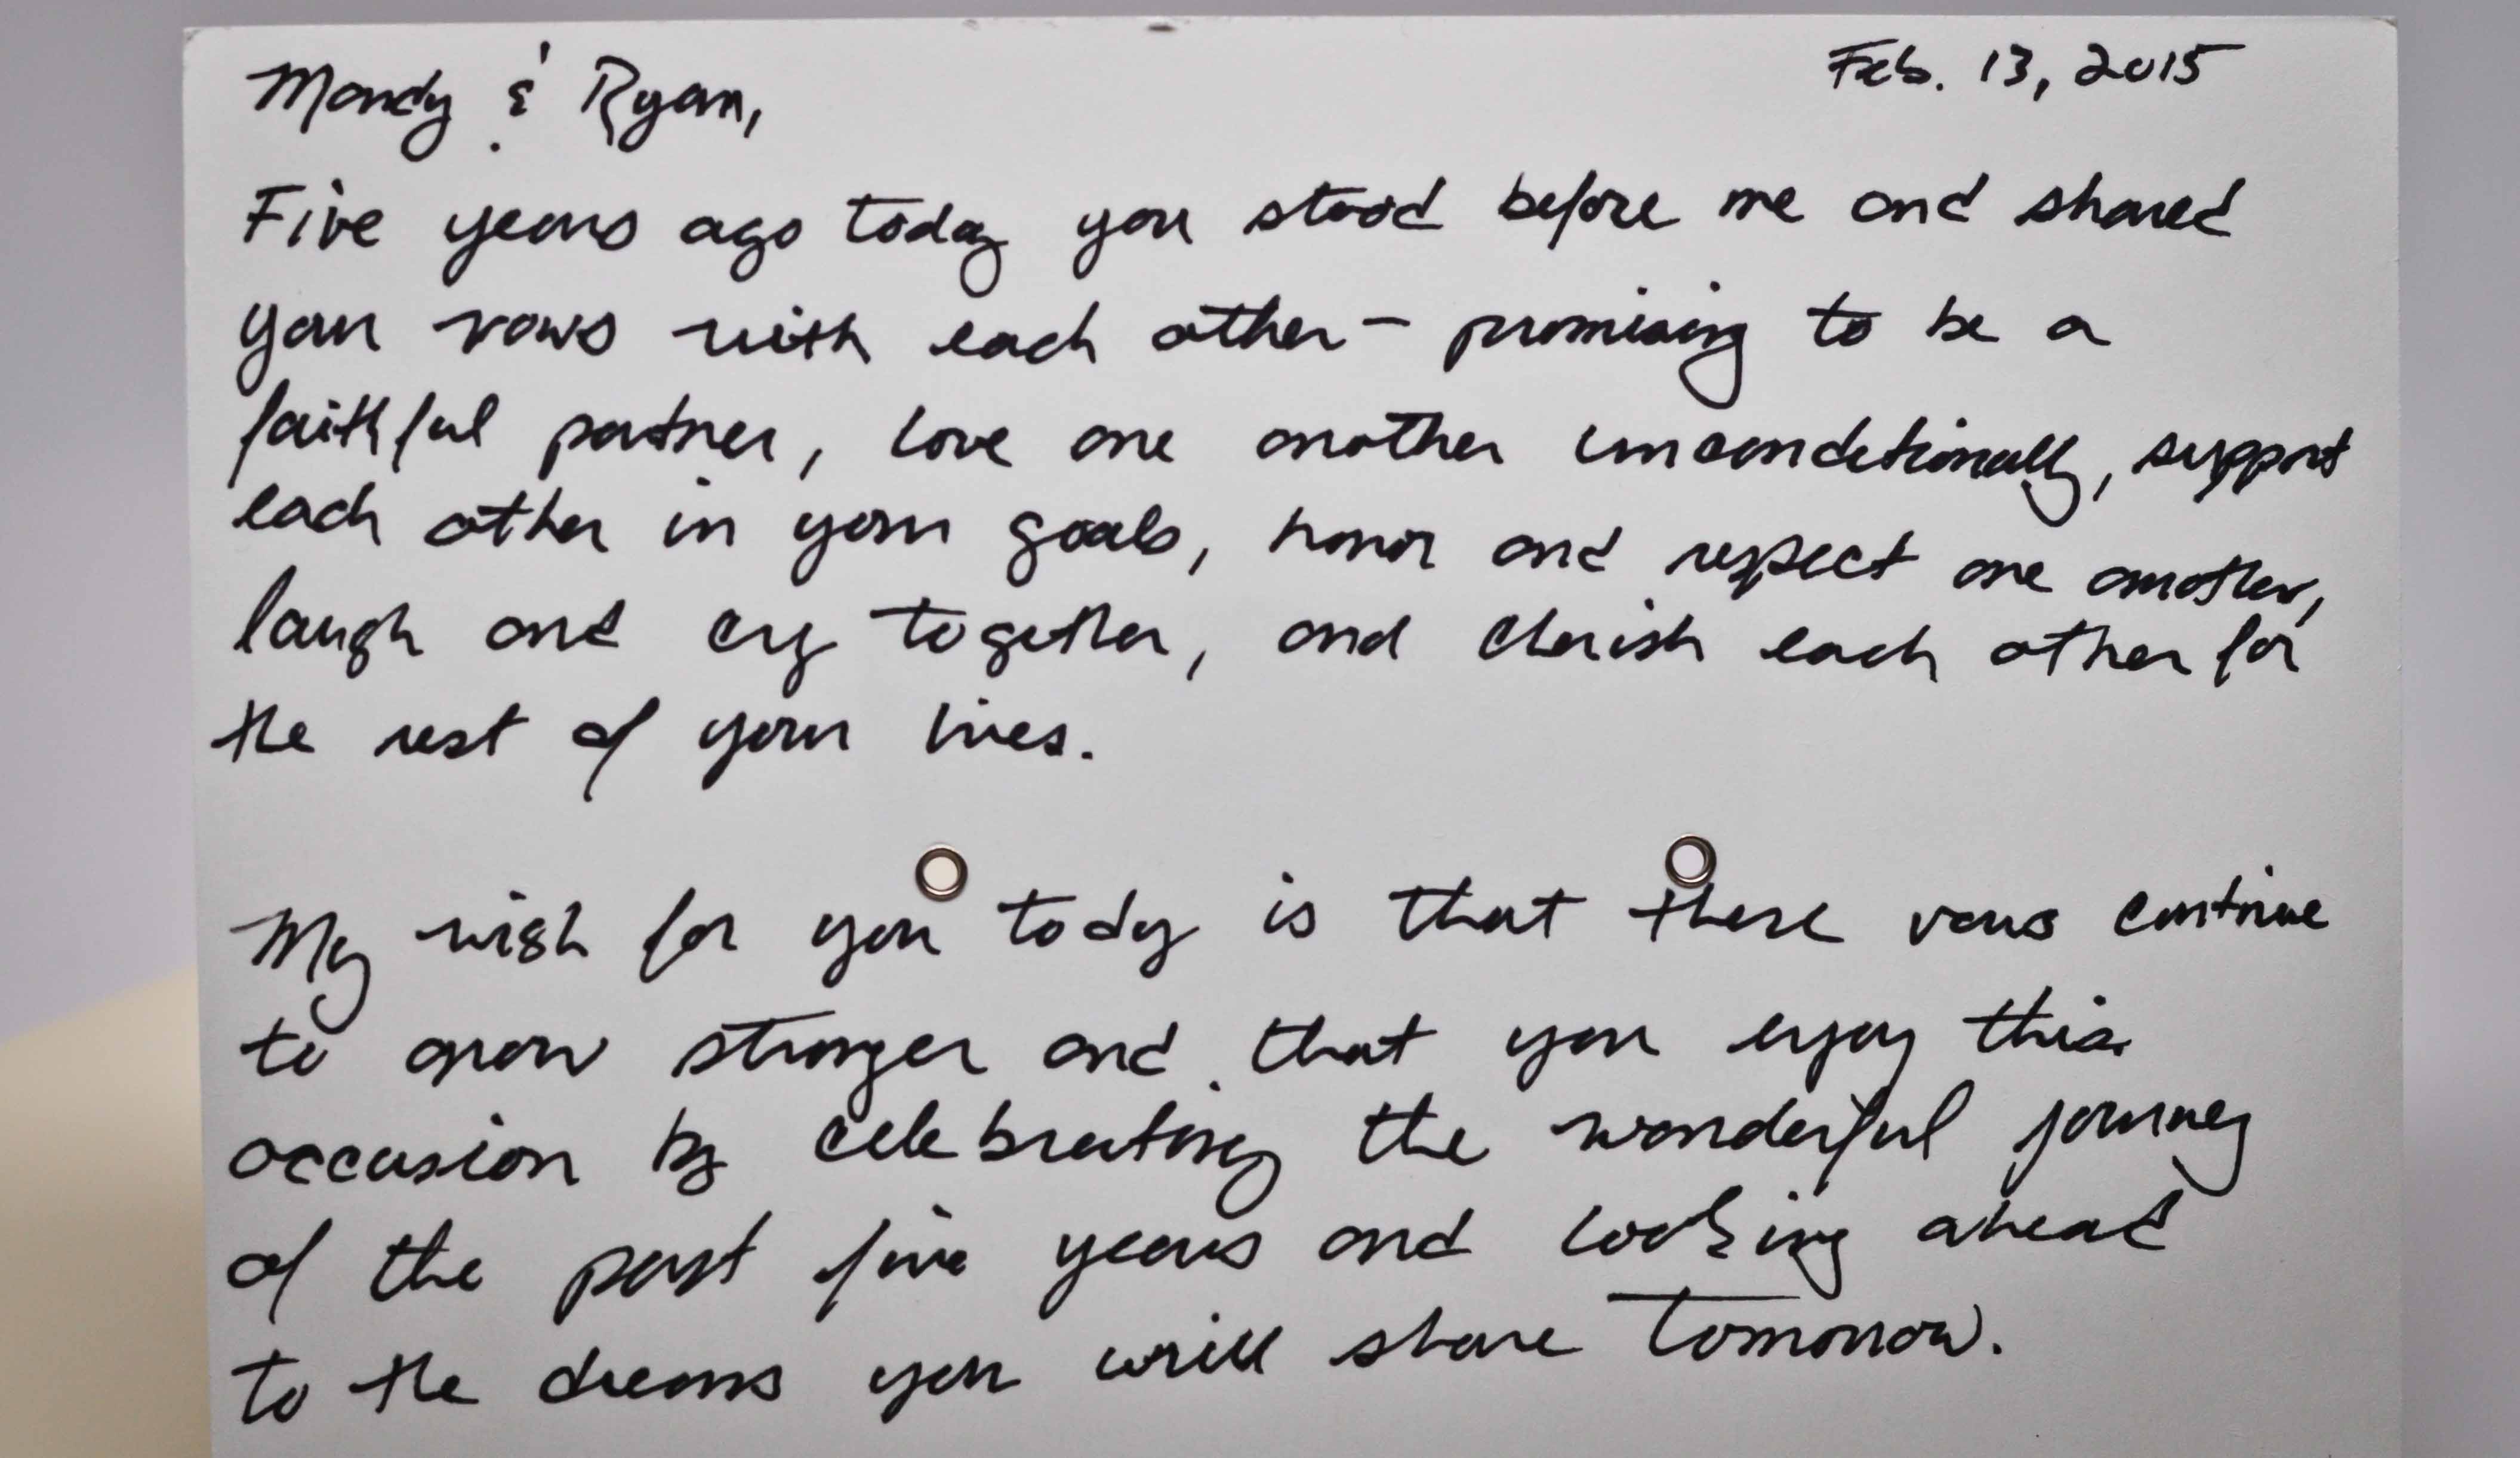 Mandy & Ryan,
Feb. 13, 2015
Five years ago today you stood before me and shared
your vows with each other - promising to be a
faithful partner, love one another unconditionally, support
each other in your goals, honor and respect one another,
laugh and cry together, and cherish each other for
the rest of your lives.
My wish for you today is that these vows continue
to grow stronger and that you enjoy this
occasion by celebrating the wonderful journey
of the past five years and looking ahead
to the dreams you will share tomorrow.